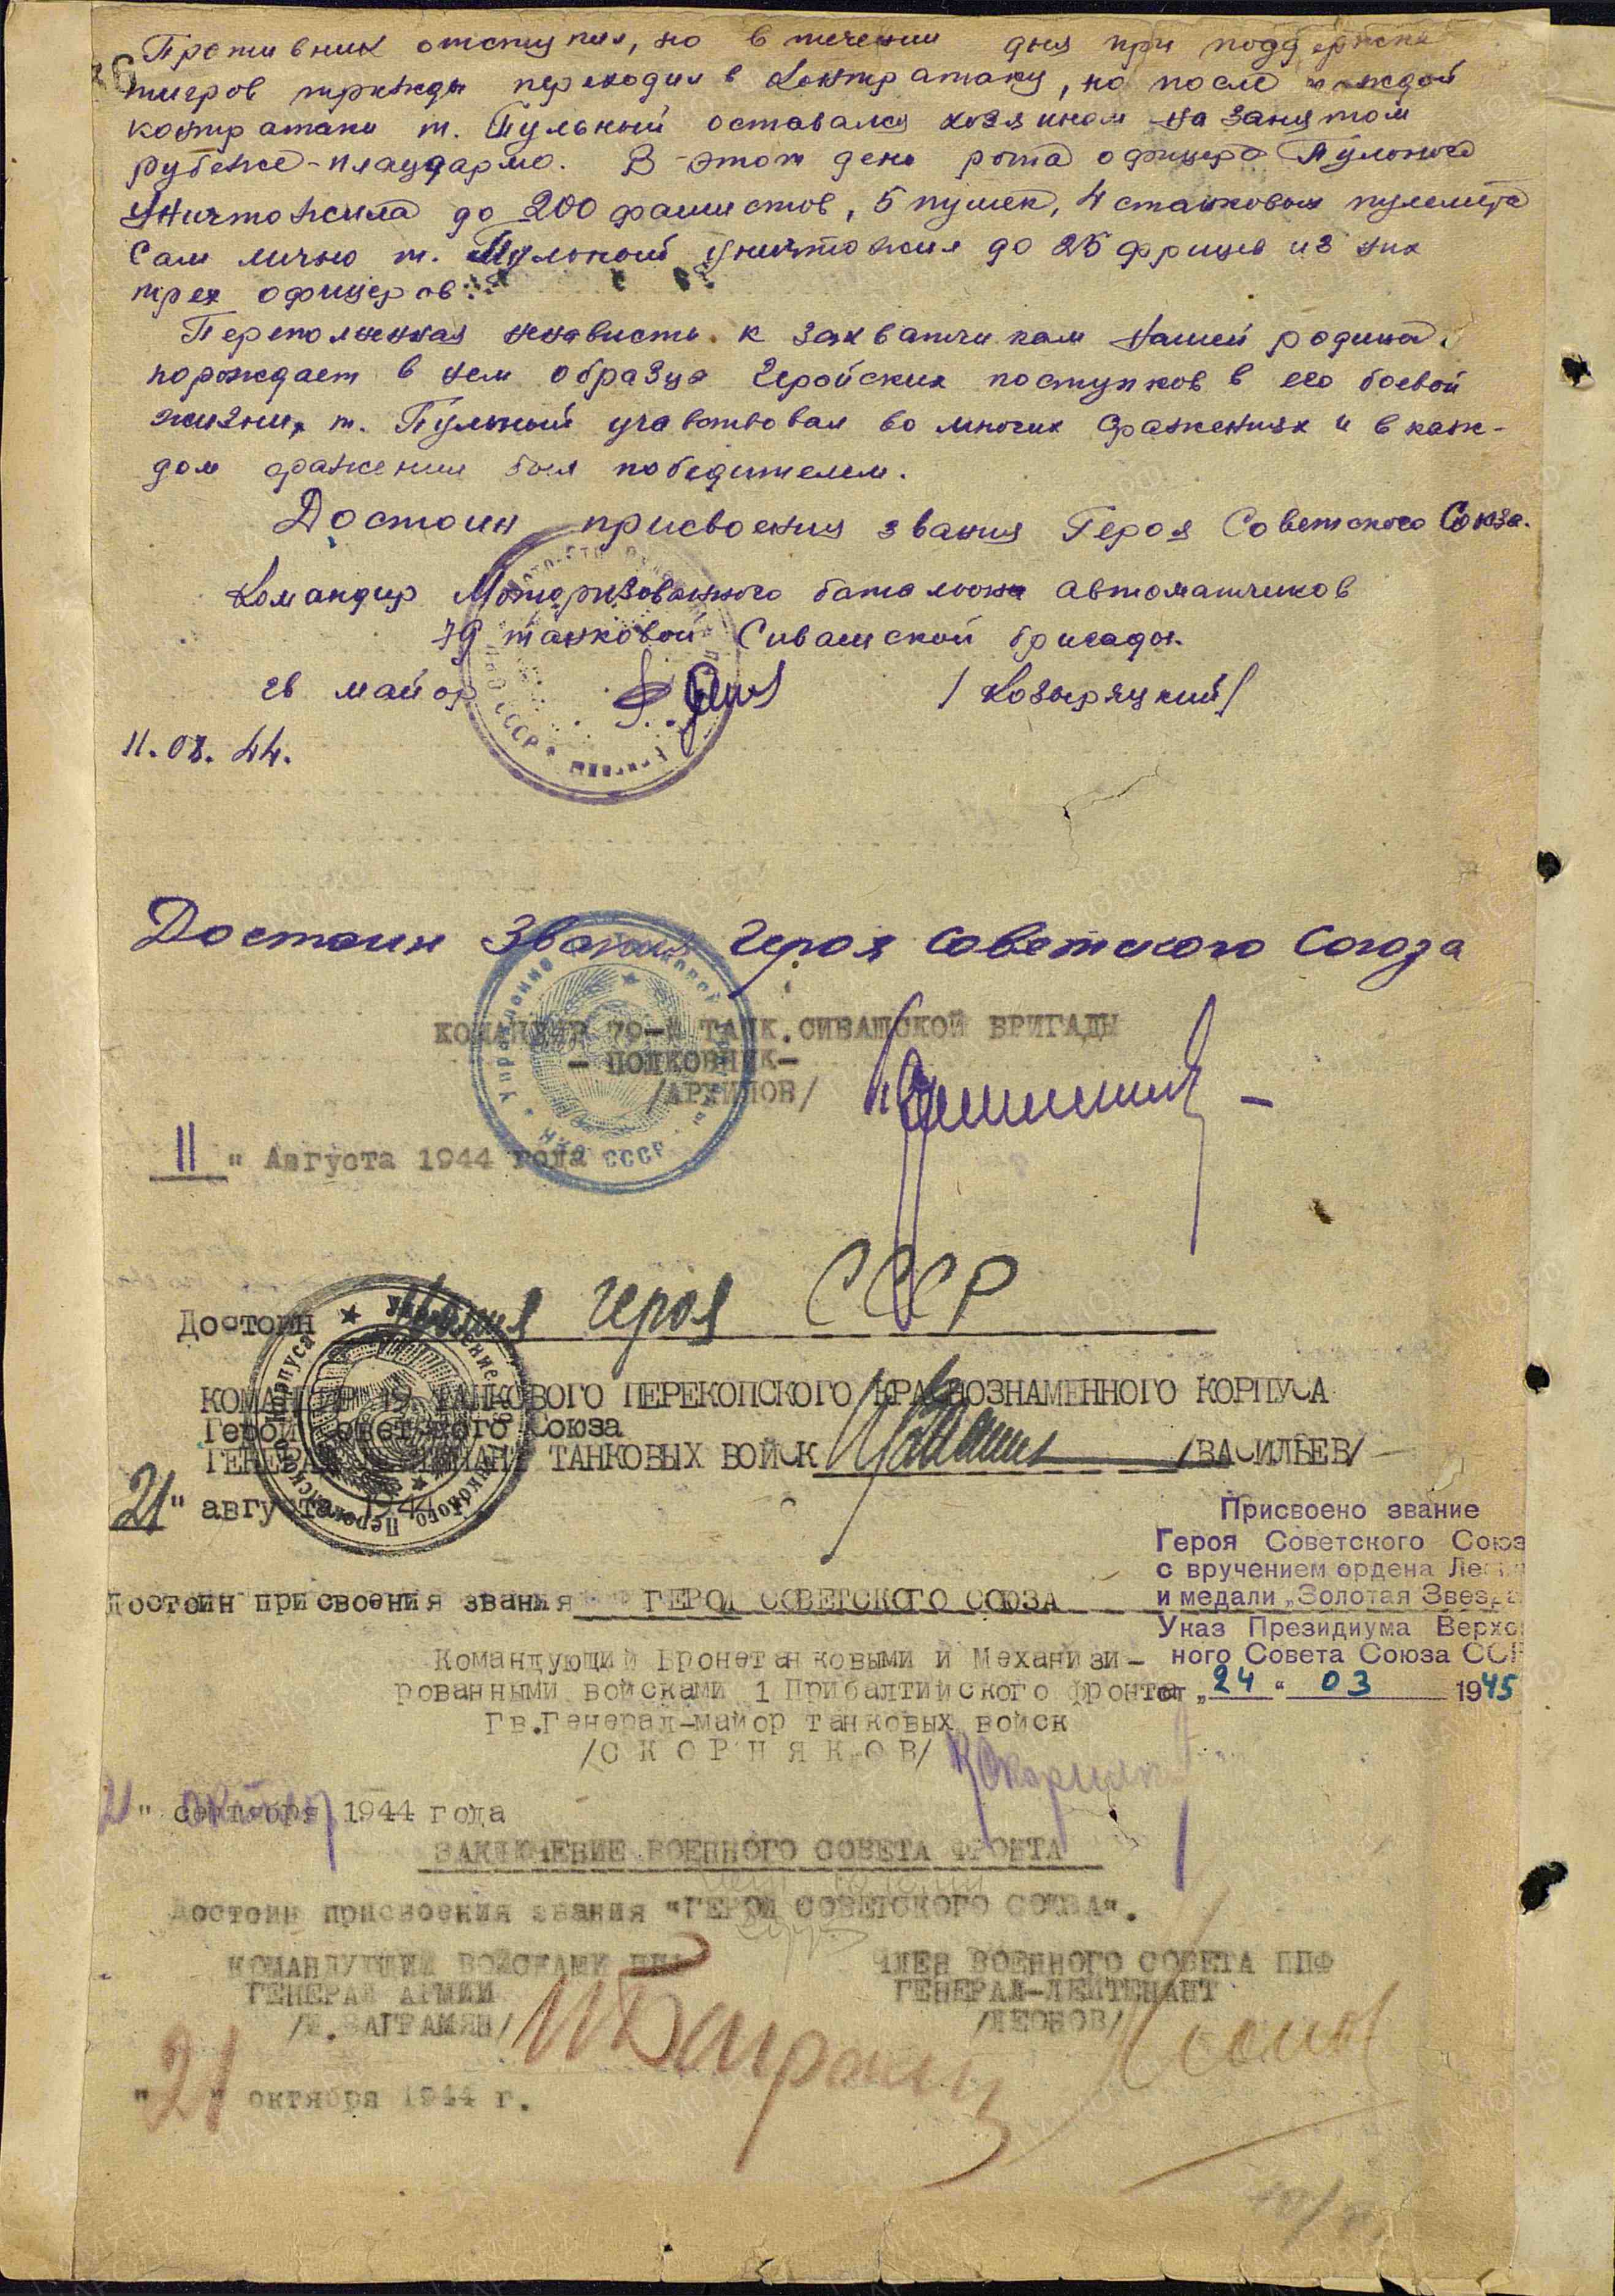 Противник отступил, но в течении дня при поддержке
тигров трижды переходил в контратаку, но после каждой
контратаки т. Пульный оставался хозяином на занятом
рубеже-плацдарме. В этот день рота офицера Пульного
Уничтожила до 200 фашистов, 5 пушек, 4 станковых пулемета
Сам лично т. Пульный уничтожил до 25 фрицев из них
трех офицеров.
Переполненная ненависть к захватчикам нашей родины
порождает в нем образцы геройских поступков в его боевой
жизни, т. Пульный учавствовал во многих сражениях и в каж-
дом сражении был победителем.
Достоин присвоения звания Героя Советского Союза.
Командир Моторизованного баталиона автоматчиков
79 танковой Сивашской бригады
гв майор /Козыряцкий/
11.08.44.
Достоин звания героя Советского Союза
КОМАНДИР 79-Й ТАНК.СИВАШСКОЙ БРИГАДЫ
- ПОЛКОВНИК-
/АРХИПОВ/
11 " Августа 1944 года
Достоин звания героя СССР
КОМАНДИР 19 ТАНКОВОГО ПЕРЕКОПСКОГО КРАСНОЗНАМЕННОГО КОРПУСА
Герой Советского Союза
ГЕНЕРАЛ ЛЕЙТЕНАНТ ТАНКОВЫХ ВОЙСК /ВАСИЛЬЕВ/
21" августа 1944
Присвоено звание
Героя Советского Союз
с вручением ордена Лени
и медали „Золотая Звезда
Указ Президиума Верхо
ного Совета Союза ССР
от „24“ 03 1945
Достоин присвоения звания ГЕРОЯ СОВЕТСКОГО СОЮЗА
Командующий Бронетанковыми и Механизи-
рованными войсками 1 Прибалтийского фронта
Гв.Генерал-майор танковых войск
/С К О Р Н Я К О В/
21" сентября октября 1944 года
ЗАКЛЮЧЕНИЕ ВОЕННОГО СОВЕТА ФРОНТА
Достоин присвоения звания "ГЕРОЙ СОВЕТСКОГО СОЮЗА".
КОМАНДУЮЩИЙ ВОЙСКАМИ ППФ
ЧЛЕН ВОЕННОГО СОВЕТА ППФ
ГЕНЕРАЛ АРМИИ
ГЕНЕРАЛ-ЛЕЙТЕНАНТ
/И.БАГРАМЯН/ И Баграмян
/ЛЕОНОВ/ Леонов
"21" октября 1944 г.